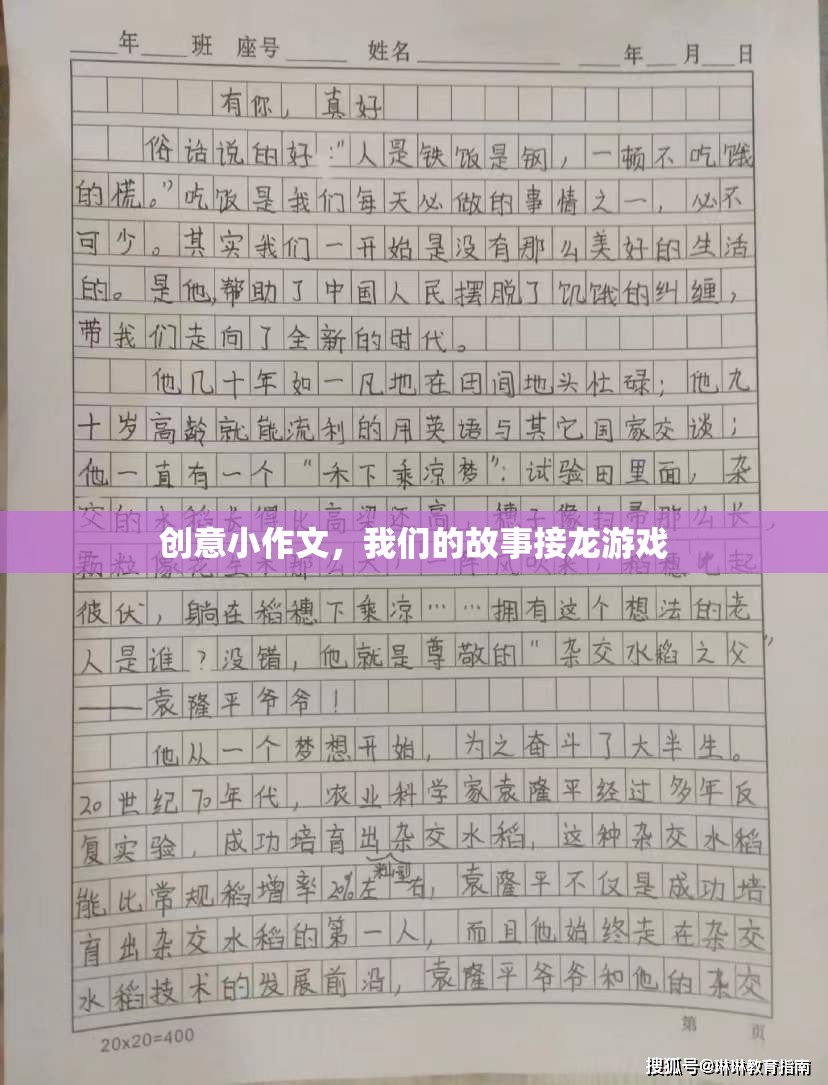 ____年____班 座号______ 姓名____________ ____年___月___日
有你，真好
俗话说的好："人是铁饭是钢，一顿不吃饿
的慌。"吃饭是我们每天必做的事情之一，必不
可少。其实我们一开始是没有那么美好的生活
的。是他，帮助了中国人民摆脱了饥饿的纠缠，
带我们走向了全新的时代。
他几十年如一凡地在田间地头忙碌；他九
十岁高龄就能流利的用英语与其它国家交谈；
他一直有一个"禾下乘凉梦"：试验田里面，杂
交的水稻长得比高粱还高，穗子像扫帚那么长，
创意小作文，我们的故事接龙游戏
颗粒像花生米那么大，一阵风吹来，稻穗此起
彼伏，躺在稻穗下乘凉……拥有这个想法的老
人是谁？没错，他就是尊敬的"杂交水稻之父"
——袁隆平爷爷！
他从一个梦想开始，为之奋斗了大半生。
20世纪70年代，农业科学家袁隆平经过多年反
复实验，成功培育出杂交水稻，这种杂交水稻
能比常规稻增率20%左右，袁隆平不仅是成功培
育出杂交水稻的第一人，而且他始终走在杂交
水稻技术的发展前沿，袁隆平爷爷和他的杂交
20x20=400
第 页
搜狐号@琳琳教育指南